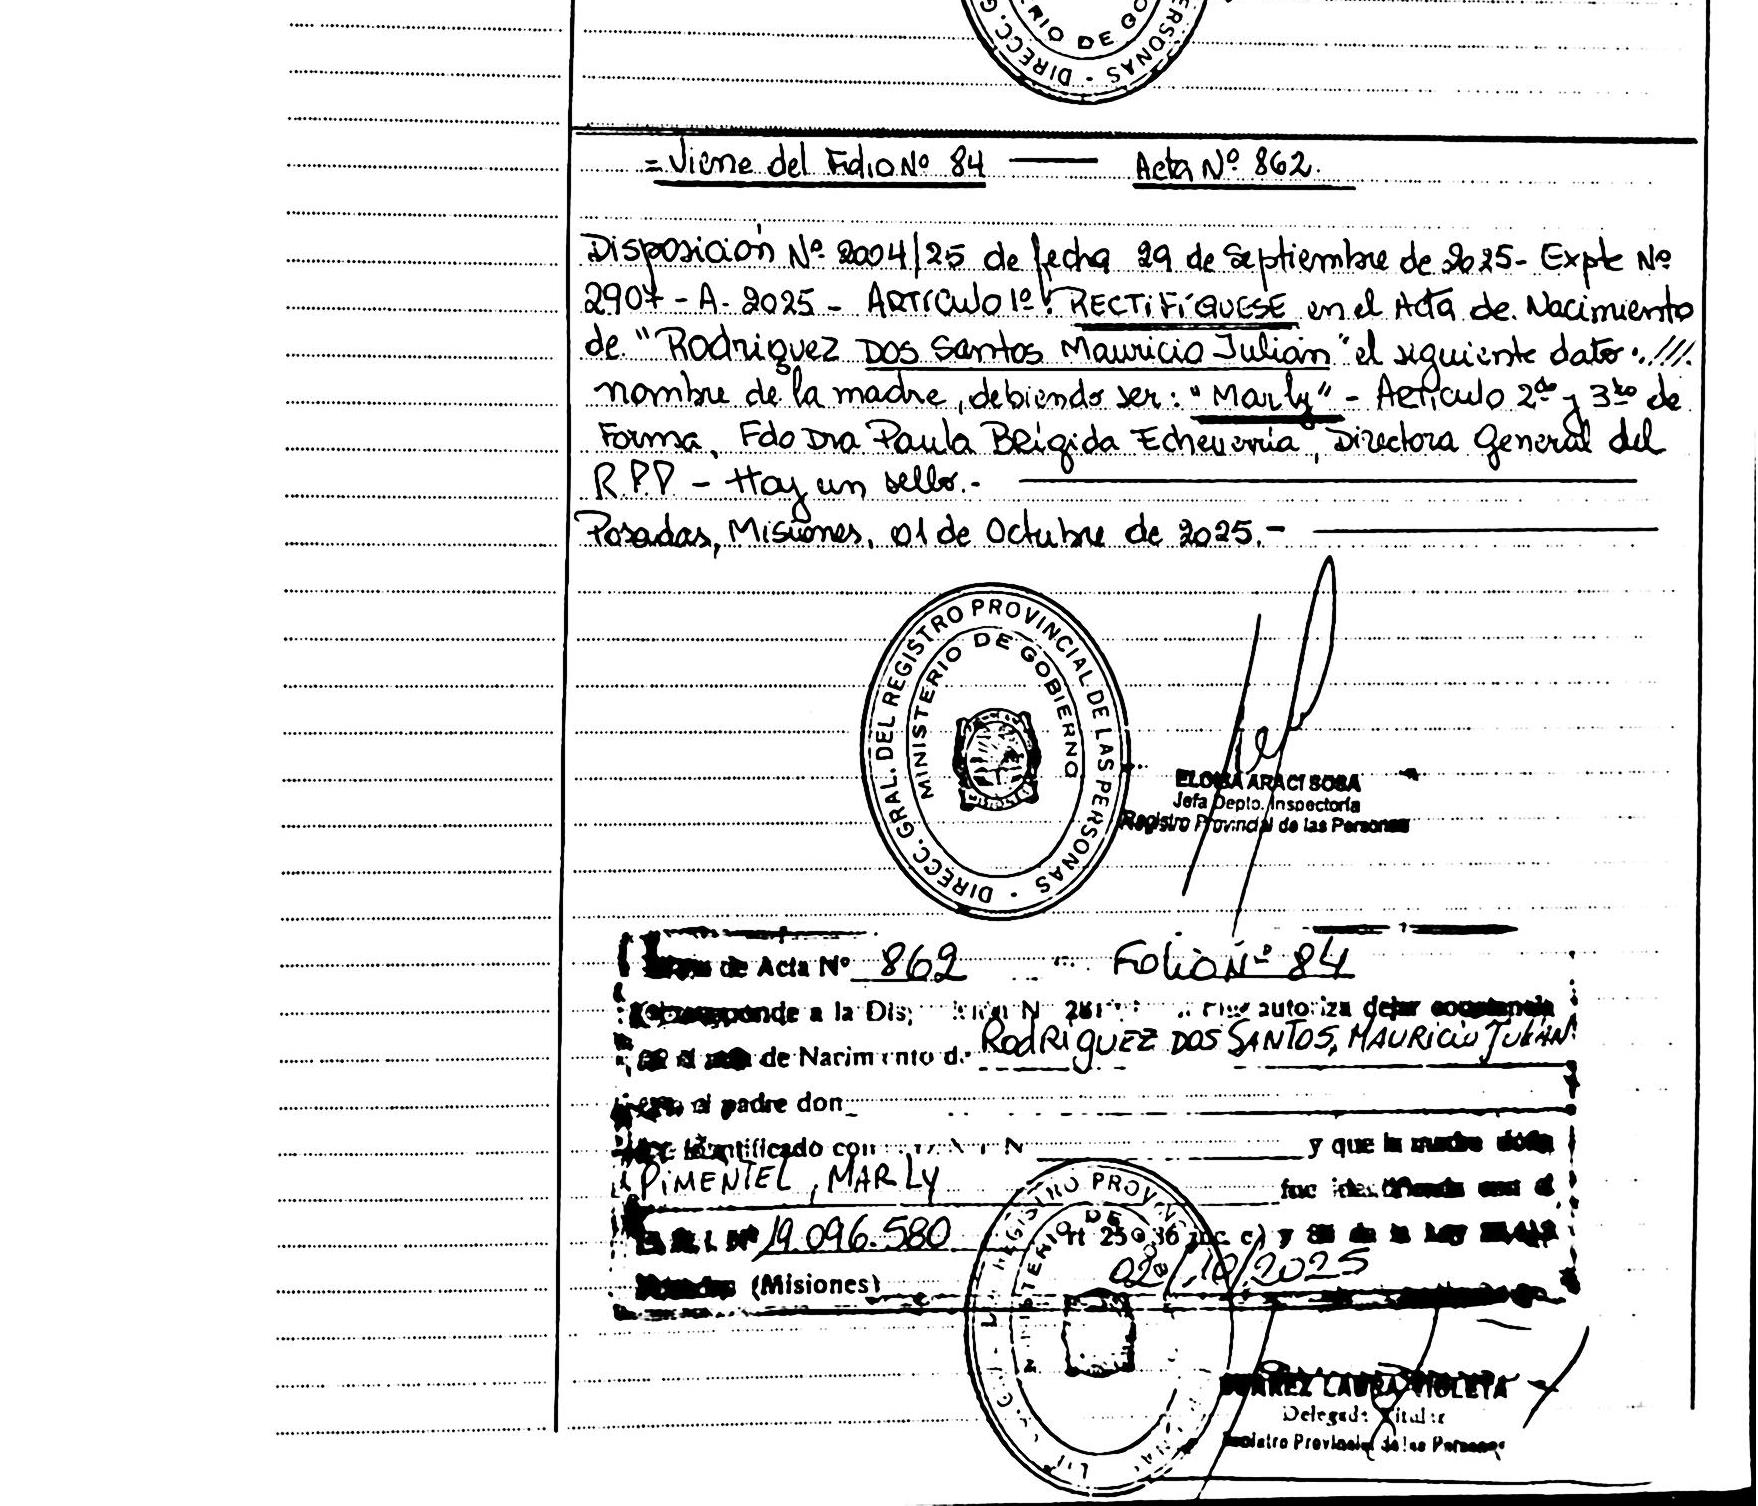 DIRECC. G
RIO DE GO
ERSONAS -
= Viene del Folio Nº 84 —— Acta Nº 862.
Disposición Nº 2004/25 de fecha 29 de Septiembre de 2025- Expte Nº
2907 - A - 2025 - ARTÍCULO 1º: RECTIFÍQUESE en el Acta de Nacimiento
de "Rodriguez Dos Santos Mauricio Julián" el siguiente dato: .///.
nombre de la madre, debiendo ser: "Marly" - Artículo 2do y 3ro de
Forma, Fdo Dra Paula Brígida Echeverría, Directora General del
R.P.P - Hay un sello.-
Posadas, Misiones, 01 de Octubre de 2025.-
DIRECC. GRAL. DEL REGISTRO PROVINCIAL DE LAS PERSONAS -
MINISTERIO DE GOBIERNO
ELOISA ARACI SOSA
Jefa Depto. Inspectoría
Registro Provincial de las Personas
de Acta Nº 862 Folio Nº 84
Corresponde a la autoriza dejar constancia
de Nacimiento de RODRIGUEZ DOS SANTOS, MAURICIO JULIÁN
el padre don
identificado con y que la madre doña
PIMENTEL, MARLY fue identificada con el
Nº 19.096.580 y de la Ley
(Misiones) 02/10/2025
REGISTRO PROV
DE
SUAREZ LAURA VIOLETA
Delegada Titular
Registro Provincial de las Personas